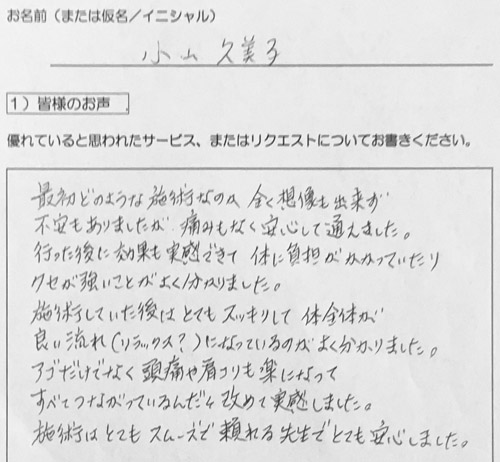 お名前（または仮名／イニシャル）
小山 久美子
1）皆様のお声
優れていると思われたサービス、またはリクエストについてお書きください。
最初どのような施術なのか 全く想像も出来ず
不安もありましたが 痛みもなく安心して通えました。
行った後に効果も実感できて 体に負担がかかっていたり
クセが強いことがよく分かりました。
施術していた後はとてもスッキリして 体全体が
良い流れ(リラックス？)になっているのがよく分かりました。
アゴだけでなく 頭痛や肩コリも楽になって
すべてつながっているんだな 改めて実感しました。
施術はとてもスムーズで 頼れる先生でとても安心しました。